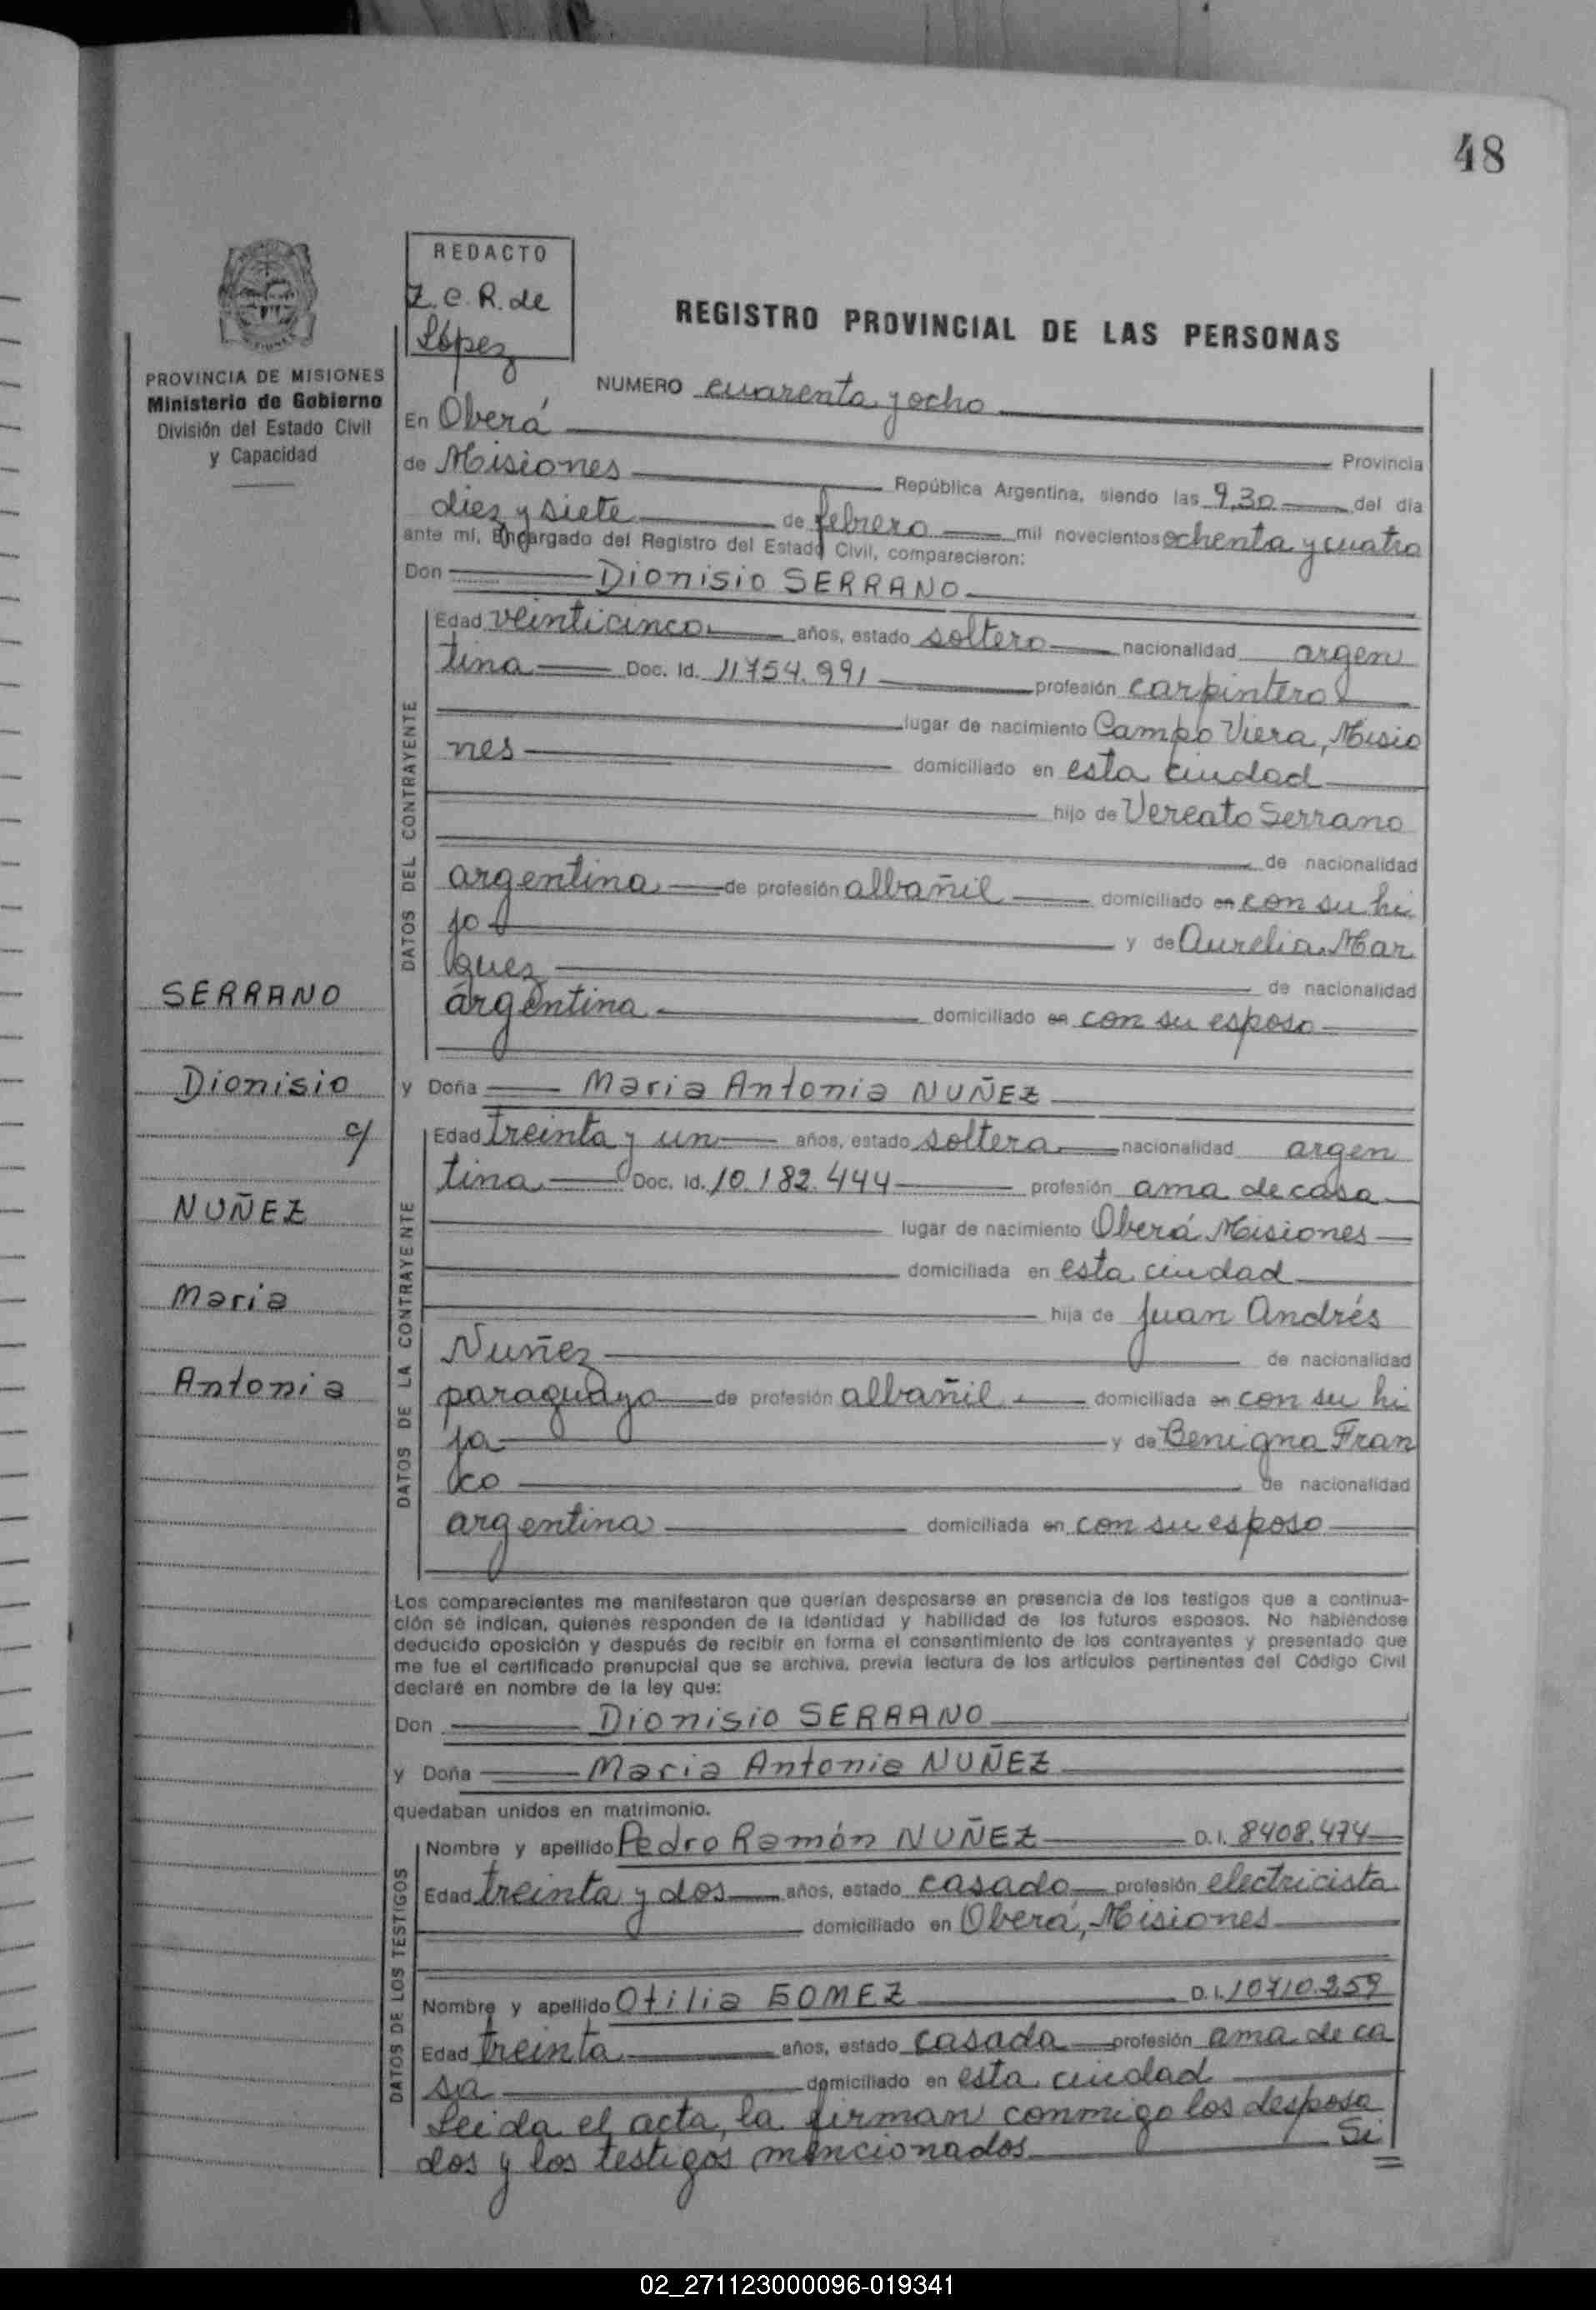 48
REDACTO
Z.C.R. de
López
REGISTRO PROVINCIAL DE LAS PERSONAS
PROVINCIA DE MISIONES
Ministerio de Gobierno
División del Estado Civil
y Capacidad
NUMERO cuarenta y ocho
En Oberá Provincia
de Misiones República Argentina, siendo las 9,30 del día
diez y siete de febrero mil novecientos ochenta y cuatro
ante mí, Encargado del Registro del Estado Civil, comparecieron:
Don Dionisio SERRANO
DATOS DEL CONTRAYENTE
Edad veinticinco años, estado soltero nacionalidad argen
tina Doc. Id. 11754.991 profesión carpintero
lugar de nacimiento Campo Viera, Misio
nes domiciliado en esta ciudad
hijo de Vereato Serrano
de nacionalidad
argentina de profesión albañil domiciliado en con su hi
jo y de Aurelia Mar
quez de nacionalidad
argentina domiciliado en con su esposo
SERRANO
Dionisio
c/
NUÑEZ
Maria
Antonia
y Doña Maria Antonia NUÑEZ
DATOS DE LA CONTRAYENTE
Edad treinta y un años, estado soltera nacionalidad argen
tina Doc. Id. 10.182.444 profesión ama de casa
lugar de nacimiento Oberá Misiones
domiciliada en esta ciudad
hija de Juan Andrés
Nuñez de nacionalidad
paraguaya de profesión albañil domiciliada en con su hi
ja y de Benigna Fran
co de nacionalidad
argentina domiciliada en con su esposo
Los comparecientes me manifestaron que querían desposarse en presencia de los testigos que a continua-
ción se indican, quienes responden de la identidad y habilidad de los futuros esposos. No habiéndose
deducido oposición y después de recibir en forma el consentimiento de los contrayentes y presentado que
me fue el certificado prenupcial que se archiva, previa lectura de los artículos pertinentes del Código Civil
declaré en nombre de la ley que:
Don Dionisio SERRANO
y Doña Maria Antonia NUÑEZ
quedaban unidos en matrimonio.
DATOS DE LOS TESTIGOS
Nombre y apellido Pedro Ramón NUÑEZ D.I. 8408.474
Edad treinta y dos años, estado casado profesión electricista
domiciliado en Oberá, Misiones
Nombre y apellido Otilia GOMEZ D.I. 10710.259
Edad treinta años, estado casada profesión ama de ca
sa domiciliado en esta ciudad
Leida el acta, la firman conmigo los desposa
dos y los testigos mencionados Si
02_271123000096-019341